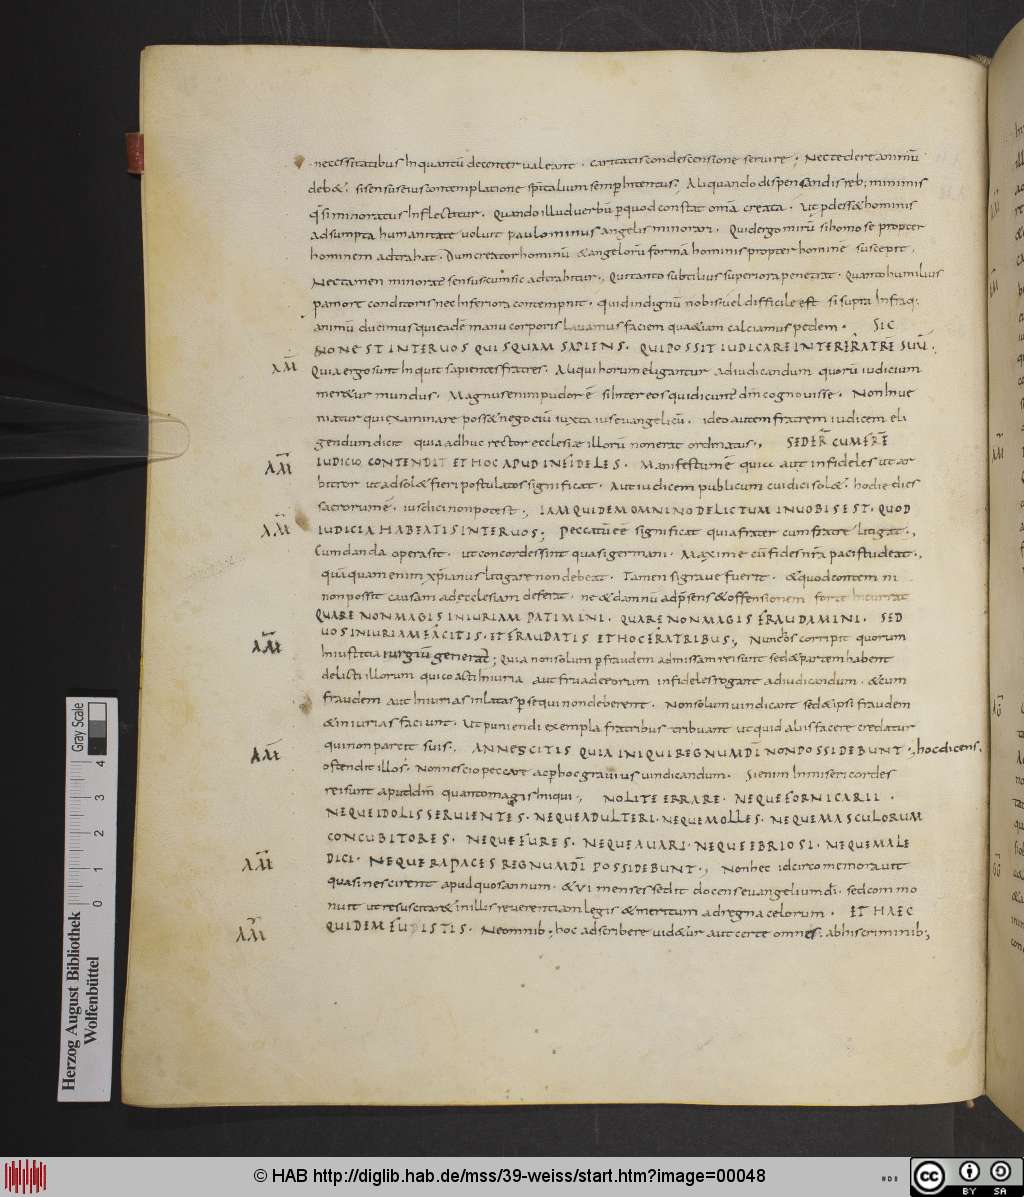 neccessitatibus inquantū decenter ualeant · caritatis condescensione seruire ; Nec tedere animū
deb& · si sensus eius contemplatione spitalium semp intentus ; Aliquando dispensandis reb; minimis
q̄si minoratus inflectatur · Quando illud uerbū p quod constat oma creata · Ut pdess& hominis
adsumpta humanitate uoluit paulo minus angelis minorari · Quid ergo mirū si homo se propter
hominem adtrahat · Dum creator hominū & angelorū formā hominis propter hominē suscepit
Nec tamen minorat sensus cum sic adtrahitur ; Qui tanto subtilius superiora penetrat · Quanto humilius
p amore conditoris nec inferiora contempnit · quid indignū nobis uel difficile est si supra infraq;
animū ducimus qui eadē manu corporis lauamus faciem qua &iam calciamus pedem · SIC
NON EST INTER UOS QUISQUAM SAPIENS · QUI POSSIT IUDICARE INTER FRATRE SUŪ ·
Quia ergo sunt inquit sapientes fratres · Aliqui horum eligantur ad iudicandum quorū iudicium
mer&ur mundus · Magnus enim pudor ē si inter eos qui dicunt dm̄ cognouisse · Non inue
niatur qui examinare poss& negociū iuxta ius euangelicū · ideo autem fratrem iudicem eli
gendum dicit quia adhuc rector ecclesiae illorū non erat ordinatus ; SED FR CUM FRĒ
IUDICIO CONTENDIT ET HOC APUD INFIDELES · Manifestum ē quia aut infideles ut ar
biter ut ad sol& fieri postulatos significat · Aut iudicem publicum cui dici sol& hodie dies
sacrorum ē · ius dici non potest ; IAM QUIDEM OMNINO DELICTUM IN UOBIS EST · QUOD
IUDICIA HABEATIS INTER UOS ; Peccatū eē significat quia frater cum fratre litigat ;
Cum danda opera sit · ut concordes sint quasi germani · Maxime cū fides nr̄a paci studeat ;
quāquam enim xp̄ianus litigare non debeat · Tamen si graue fuerit · & quod contemni
non possit causam ad ecclesiam deferat · ne & damnū ad psens & offensionem forte incurrat
QUARE NON MAGIS INIURIAM PATIMINI · QUARE NON MAGIS FRAUDAMINI · SED
UOS INIURIAM FACITIS · ET FRAUDATIS ET HOC FRATRIBUS ; Nunc eos corripit quorum
iniustitia iurgiū generat ; Quia non solum p fraudem admissam rei sunt sed & partem habent
delicti illorum qui coacti iniuria aut fraude eorum infideles rogant ad iudicandum · & cum
fraudem aut iniurias inlatas psequi non deberent · Non solum uindicant sed & ipsi fraudem
& iniurias faciunt · Ut puniendi exempla fratribus tribuant ut quid aliis facere credatur
qui non parcit suis ; AN NESCITIS QUIA INIQUI REGNUM DI NON POSSIDEBUNT ; hoc dicens
ostendit illos · Non nescio peccare ac p hoc grauius uindicandum · Si enim inmisericordes
rei sunt apud dm̄ quanto magis iniqui ; NOLITE ERRARE · NEQUE FORNICARII ·
NEQUE IDOLIS SERUIENTES · NEQUE ADULTERI · NEQUE MOLLES · NEQUE MASCULORUM
CONCUBITORES · NEQUE FURES · NEQUE AUARI · NEQUE EBRIOSI · NEQUE MALE
DICI · NEQUE RAPACES REGNUM DI POSSIDEBUNT ; Non hec idcirco memorauit
quasi nescirent apud quos annum · & VI menses sedit docens euangelium di · sed com mo
nuit ut resuscitar& in illis reuerentiam legis & meritum ad regna celorum · ET HAEC
QUIDEM FUISTIS · Ne omnib; hoc adscribere uid&ur aut certe omnes · ab his criminib;
Gray Scale
Herzog August Bibliothek
Wolfenbüttel
0 1 2 3 4
© HAB http://diglib.hab.de/mss/39-weiss/start.htm?image=00048
CC BY SA